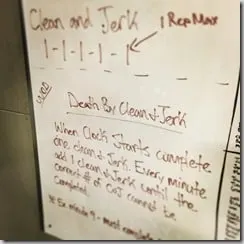 Clean and Jerk
1 Rep Max
1-1-1-1-1
Death By Clean & Jerk
When Clock Starts complete
one clean & Jerk. Every minute
add 1 clean & Jerk until the
correct # of C&J cannot be
completed.
must complete